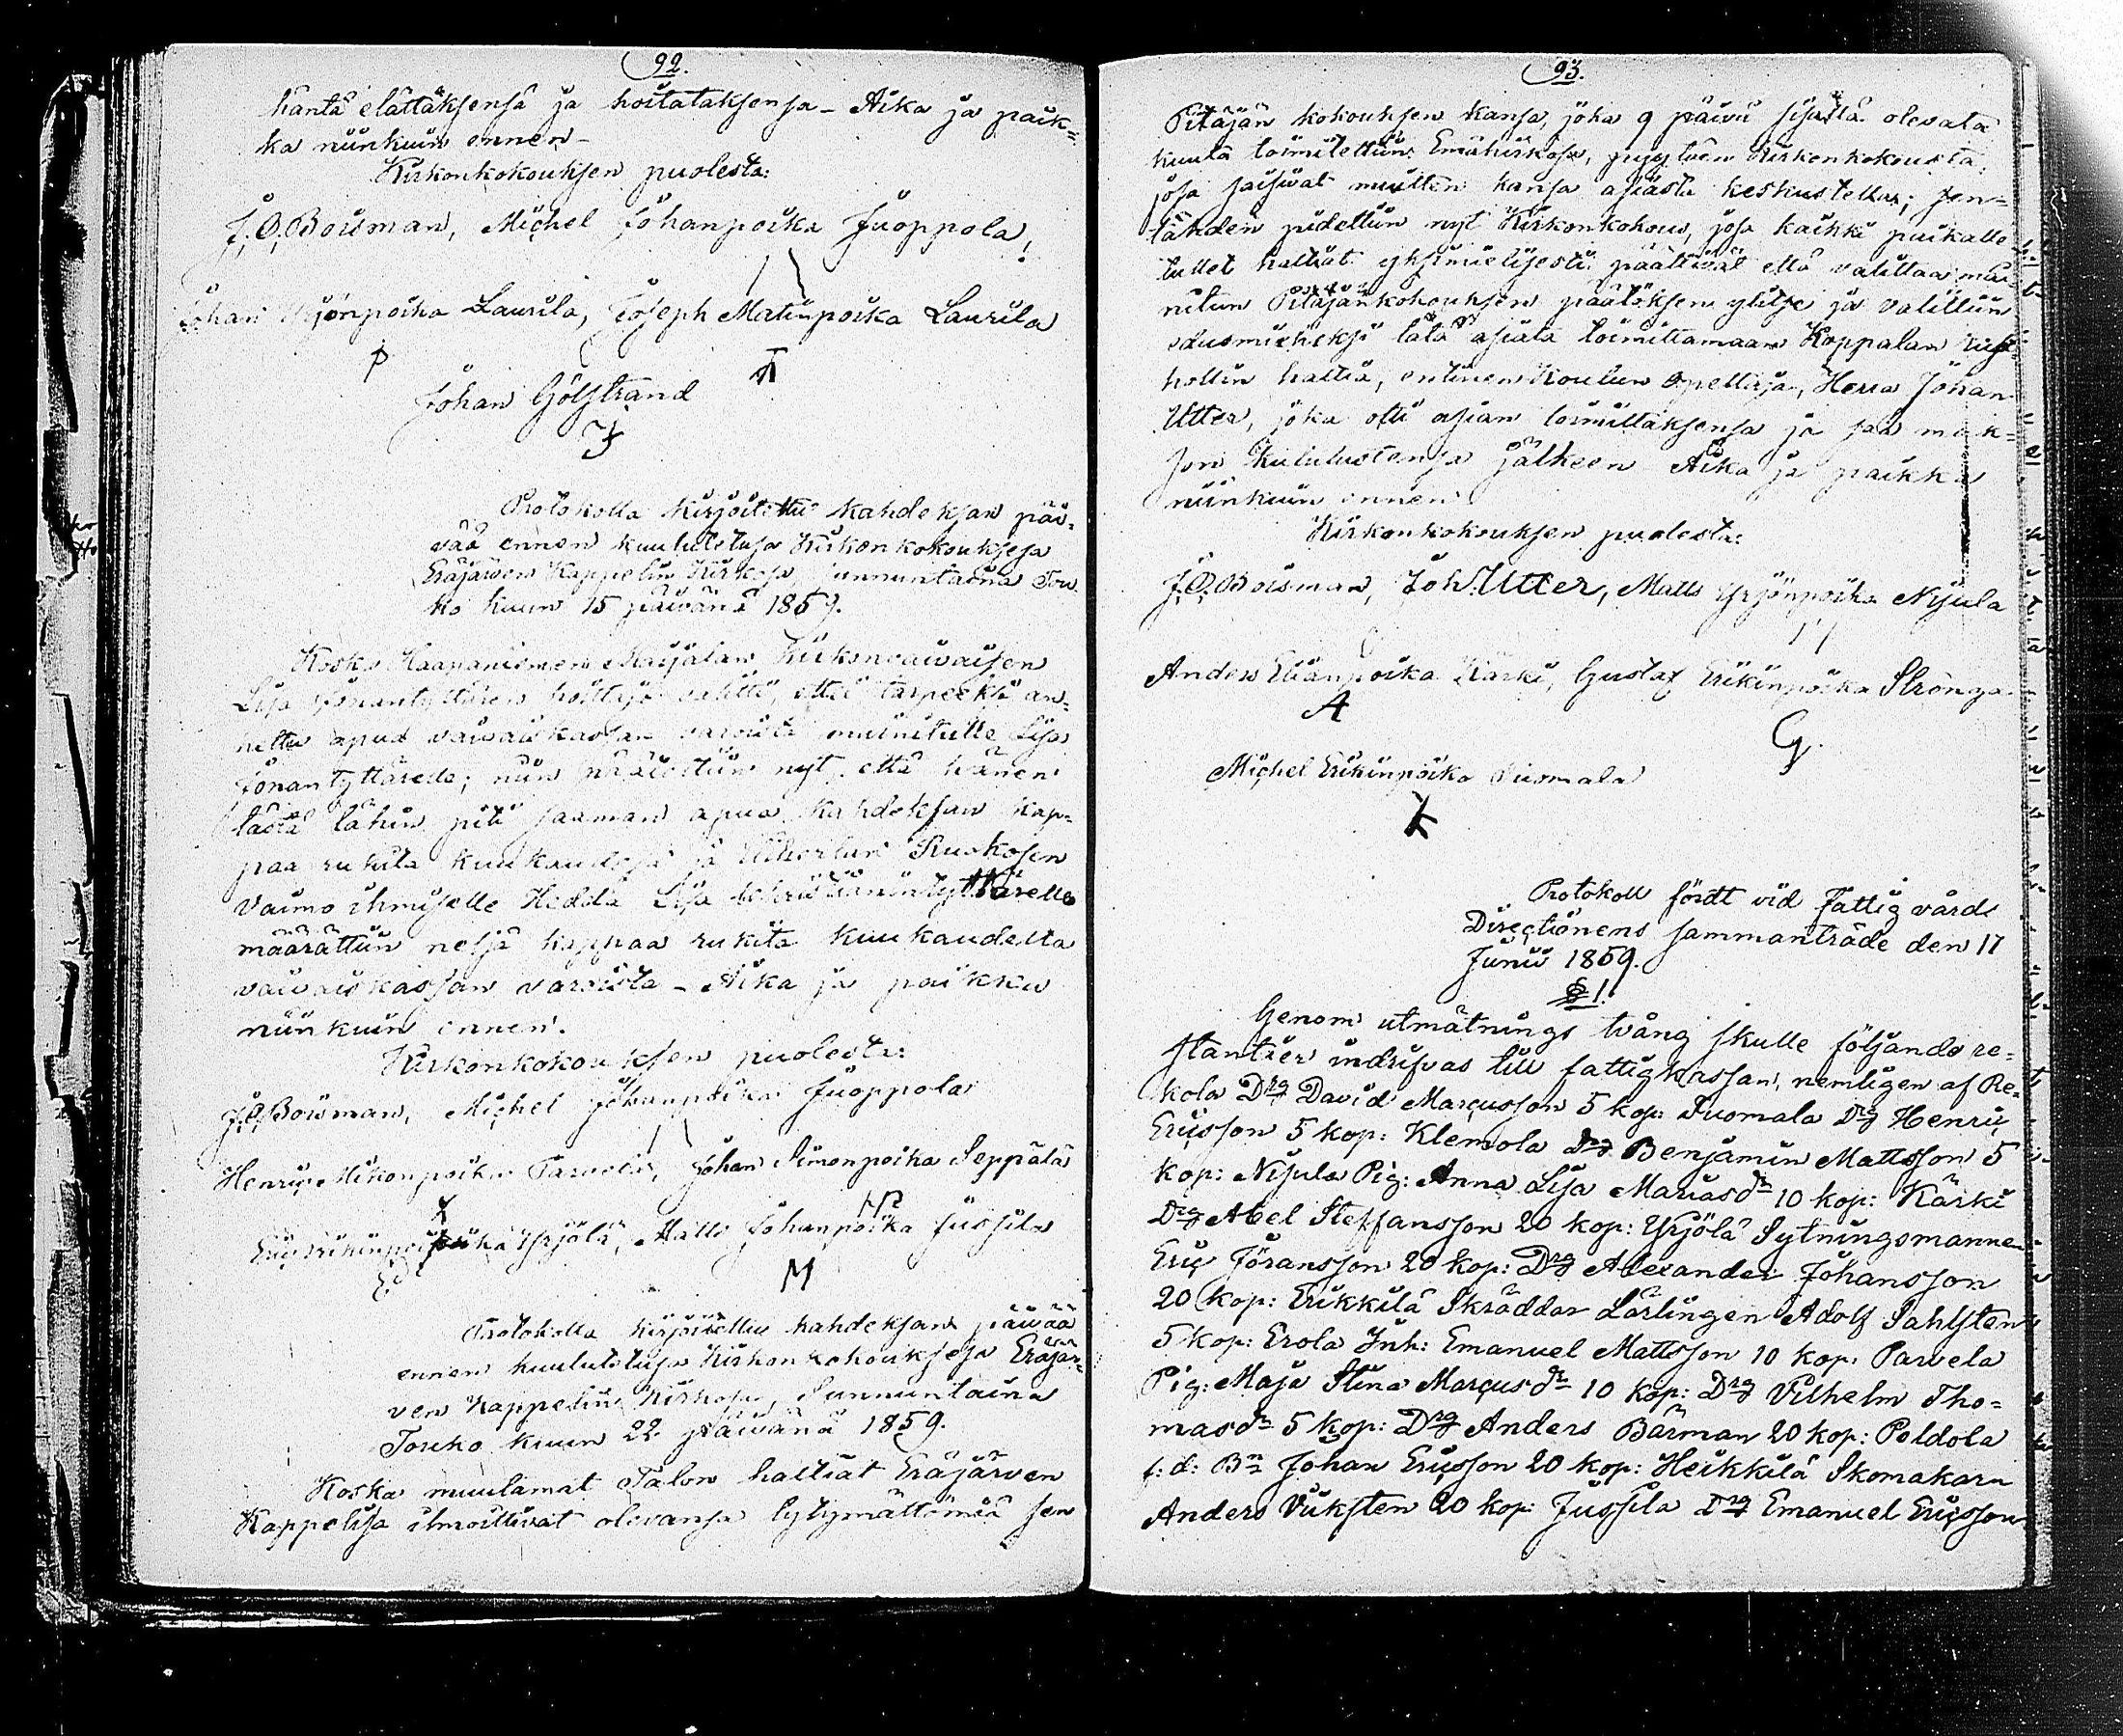 92.
häntä elättäksensä ja hoitataksensa - Aika ja paik=
ka niinkuin ennen -
Kirkonkokouksen puolesta:
J. O. Boisman, Michel Johanpoika Juoppola,
Johan Yrjönpoika Laurila, Joseph Matinpoika Laurila
Johan Gölstrand
Protokolla kirjoitettu kahdeksan päi=
vää ennen kuulutetusa Kirkonkokouksesa
Eräjärven Kappelin Kirkosa sunnuntaina Tou
ko kuun 15 päivänä 1859.
Koska Haapaniemen Maijalan Kirkonvaivaisen
Lisa Jönantyttären hoittaja valitti, ettei tarpeeksi an=
nettu apua vaivaiskassan varoista mainitulle Lisa
Jönantyttärelle; niin päätettiin nyt että hänen
tästä lähin piti saaman apua kahdeksan kap=
paa rukiita kuukaudesa ja Ruskosen
vaimo ihmiselle Hedda Lisa tyttärelle
määrättiin neljä kappaa rukiita kuukaudelta
vaivaiskassan varoista - Aika ja paikka
niinkuin ennen.
Kirkonkokouksen puolesta:
J. O. Boisman, Michel Johanpoika Juoppola
Henric Mikonpoika Parvela, Johan Simonpoika Seppälä
Eric Erikinpoika Yrjölä, Matts Johanpoika Jussila
M
Protokolla kirjoitettu kahdeksan päivää
ennen kuulutetusa Kirkonkokouksesa Eräjär=
ven Kappelin Kirkosa Sunnuntaina
Touko kuun 22 päivänä 1859.
Koska muutamat Talon haltiat Eräjärven
Kappelisa ilmoittivat olevansa tytymättömiä sen
93.
Pitäjän kokouksen kansa, joka 9 päivä sisällä olevata
kuuta toimitettiin Emäkirkosa, pyytäen Kirkonkokousta,
josa saisivat muitten kansa asiasta keskustella; sen=
tähden pidettiin nyt Kirkonkokous, josa kaikki paikalle
tullet haltiat yksimielisesti päättivät että valittaa mai=
nitun Pitäjänkokouksen päätöksen ylitse ja valittiin
edusmieheksi tätä asiata toimittamaan Koppalan rust=
hollin haltia, entinen Koulun opettaja, Herra Johan
Utter, joka otti asian toimittaksensa ja saa mak=
son kulutustensa jälkeen Aika ja paikka
niinkuin ennen
Kirkonkokouksen puolesta:
J. O. Boisman, Joh: Utter, Matts Yrjönpoika Nisula
Anders Eliänpoika Kärki, Gustaf Erikinpoika Strönga
A
G.
Michel Erikinpoika Suomala
Protokoll fördt vid Fattig vårds
Directionens sammanträde den 17
Junii 1859.
§ 1.
Genom utmätnings tvång skulle följande re=
stantier indrifvas till fattigkassan, nemligen af Re=
kola Drg David Marcusson 5 kop: Suomala Drg Henric
Ericsson 5 kop: Klemola Drg Benjamin Mattsson 5
kop: Nisula Pig: Anna Lisa Mariasdr 10 kop: Kärki
Drg Abel Steffansson 20 kop: Yrjölä Sytningsmannen
Eric Jöransson 20 kop: Drg Alexander Johansson
20 kop: Erikkilä Skräddar Lärlingen Adolf Sahlsten
5 kop: Erola Inh: Emanuel Mattsson 10 kop. Parvela
Pig: Maja Stina Marcusdr 10 kop: Drg Vilhelm Tho=
masdr 5 kop: Drg Anders Bärman 20 kop: Poldola
f: d: Bn Johan Ericsson 20 kop: Heikkilä Skomakarn
Anders Viksten 20 kop: Jussila Drg Emanuel Ericsson